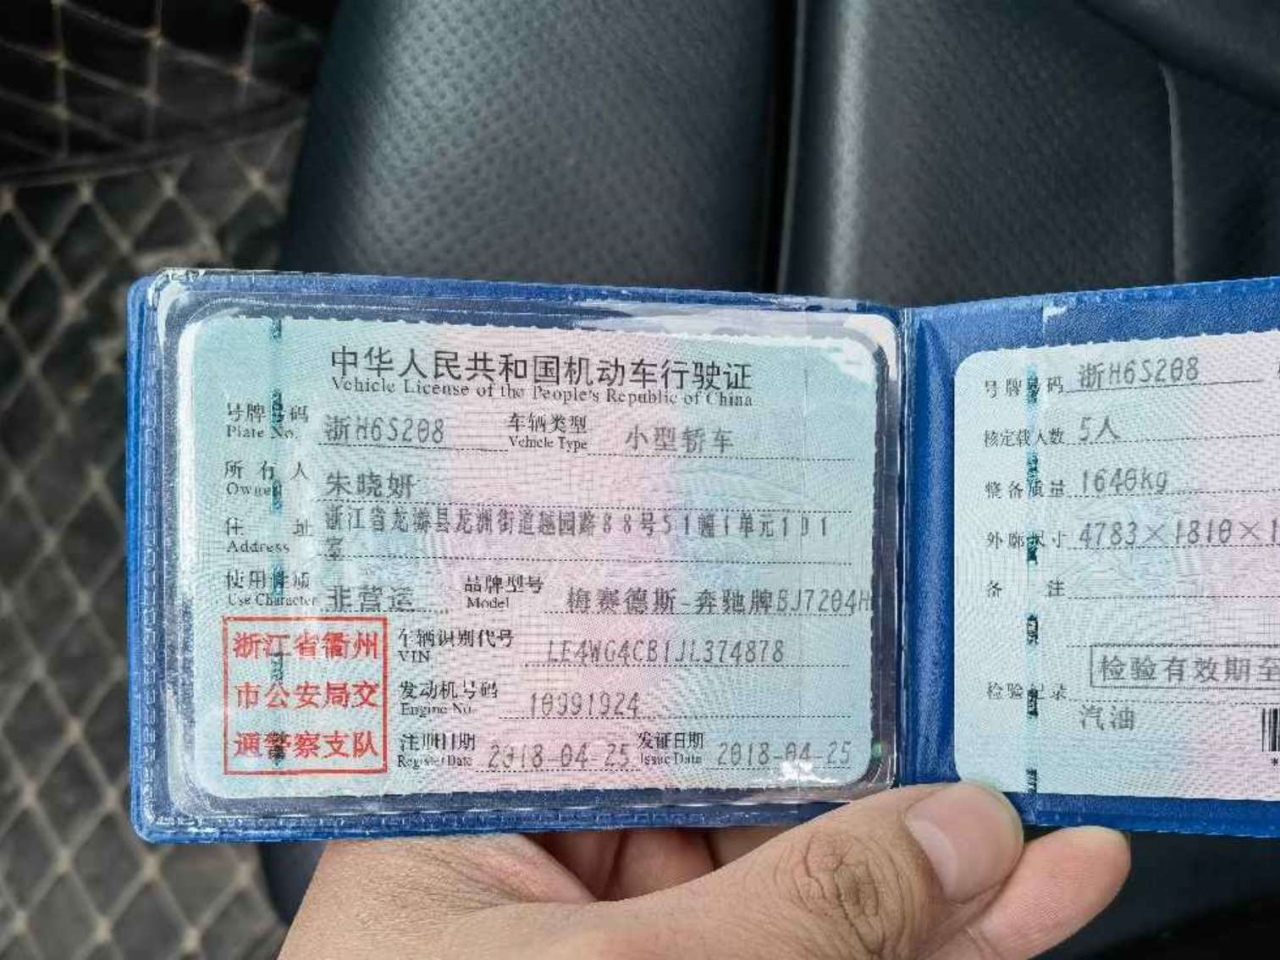 中华人民共和国机动车行驶证
Vehicle License of the People's Republic of China
号牌号码 浙H6S208 车辆类型 小型轿车
Plate No. Vehicle Type
所有人 朱晓妍
Owner
住址 浙江省龙游县龙洲街道 园路88号51幢1单元101
Address 室
使用性质 非营运 品牌型号 梅赛德斯-奔驰牌BJ7204H
Use Character Model
浙江省衢州
市公安局交
通警察支队
车辆识别代号 LE4WG4CB1JL374878
VIN
发动机号码 10991924
Engine No.
注册日期 2018-04-25 发证日期 2018-04-25
Register Date Issue Date
号牌号码 浙H6S208
核定载人数 5人
整备质量 1640kg
外廓尺寸 4783×1810×1
备注
检验有效期至
检验记录
汽油